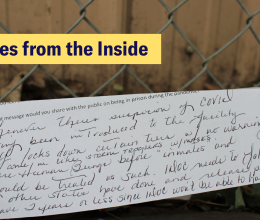 es from the Inside
message would you share with the public on being in person during the pandemic
Whenever there's suspicion of covid
being introduced to the facility
locks down certain tiers w/ no warning
like storm troopers w/ masks.
Human Beings before inmates and
ould be treated as such. IDOC needs to follow
other states have done and release
have 2 years or less since IDOC won't be able to ha